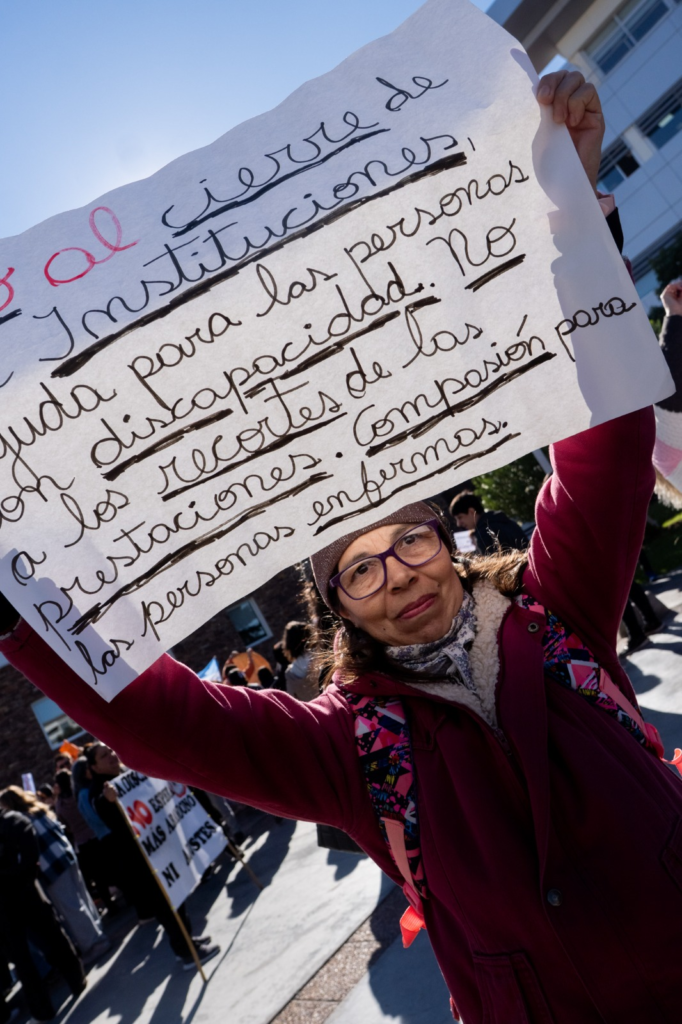 o al cierre de
Instituciones,
yuda para las personas
on discapacidad. No
a los recortes de las
prestaciones. Compasión para
las personas enfermas.
NO
MAS
NI